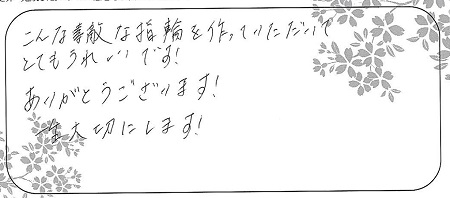 こんな素敵な指輪を作っていただいて
とてもうれしいです!
ありがとうございます!
一生大切にします!